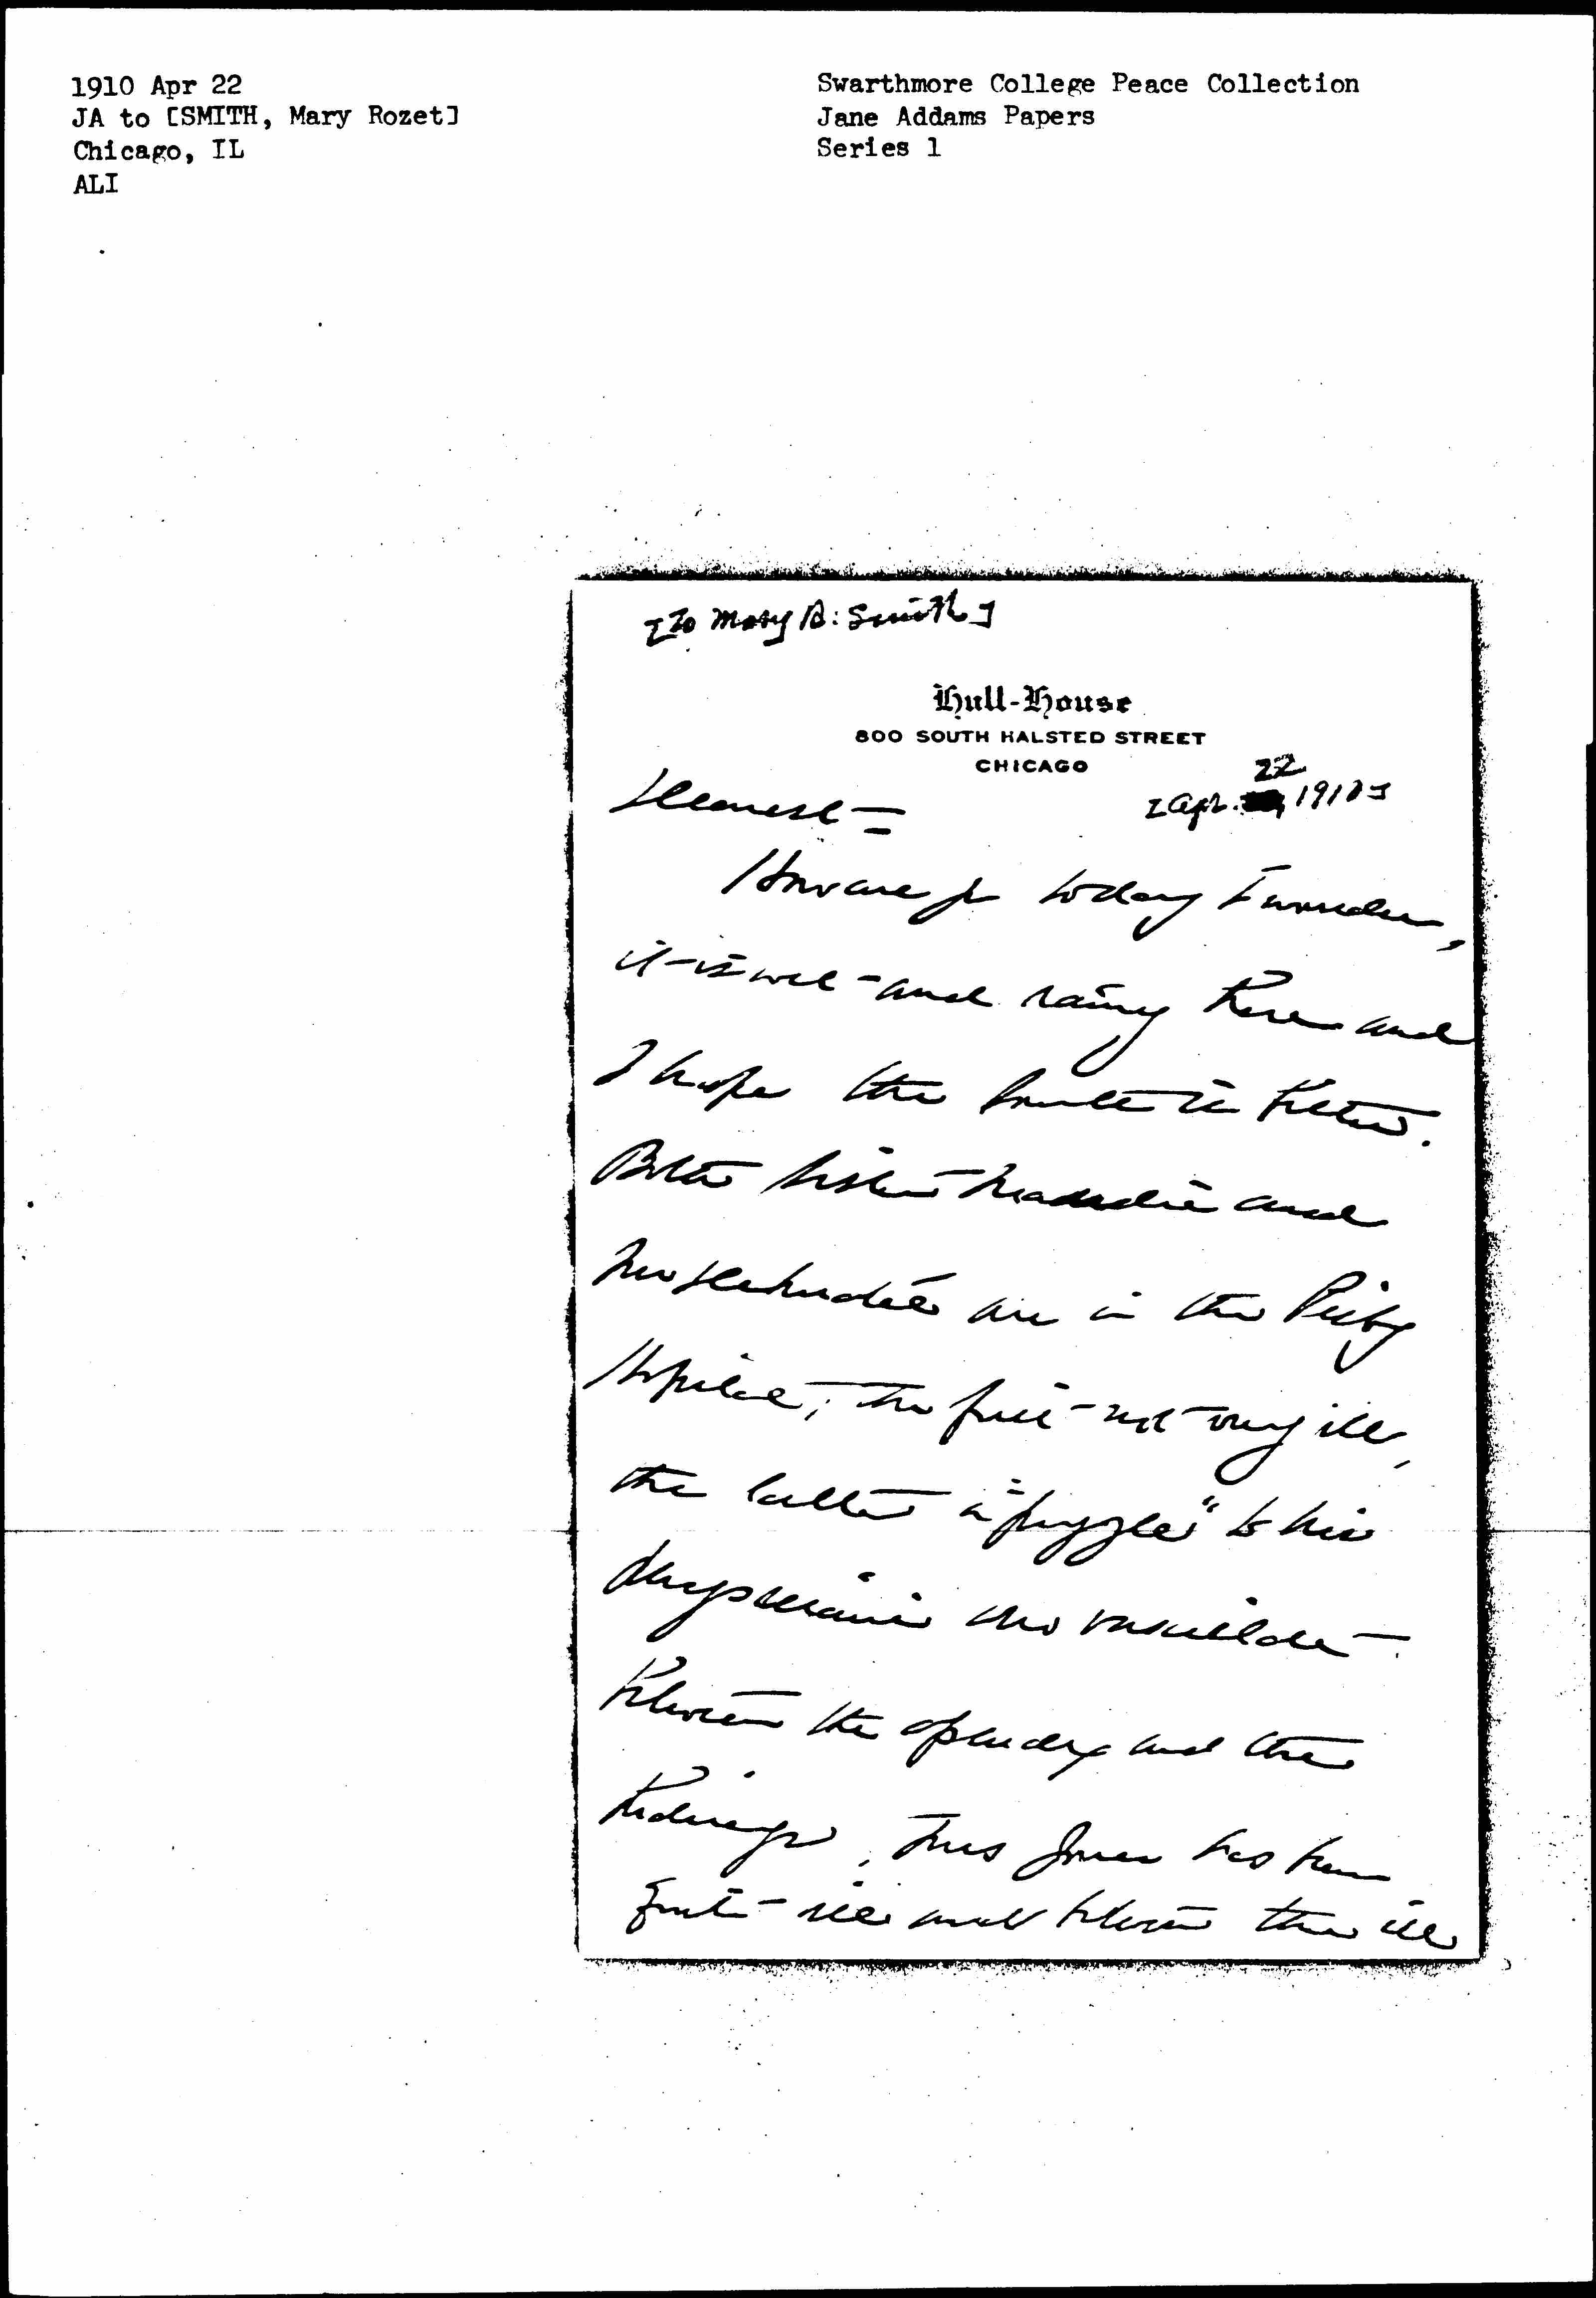 1910 Apr 22
JA to [SMITH, Mary Rozet]
Chicago, IL
ALI
Swarthmore College Peace Collection
Jane Addams Papers
Series 1
[To Mary R. Smith]
Hull-House
800 SOUTH HALSTED STREET
CHICAGO
22
[Apr. 1910]
Dearest —
How are you today I wonder,
it is wet and rainy here and
I hope the is better.
Both and
are in the
Hospital, the first not very ill,
the latter a "puzzle" to his
physicians who vacillate
between the apendix and the
kidneys. Miss Jones has been
quite ill and between the ill